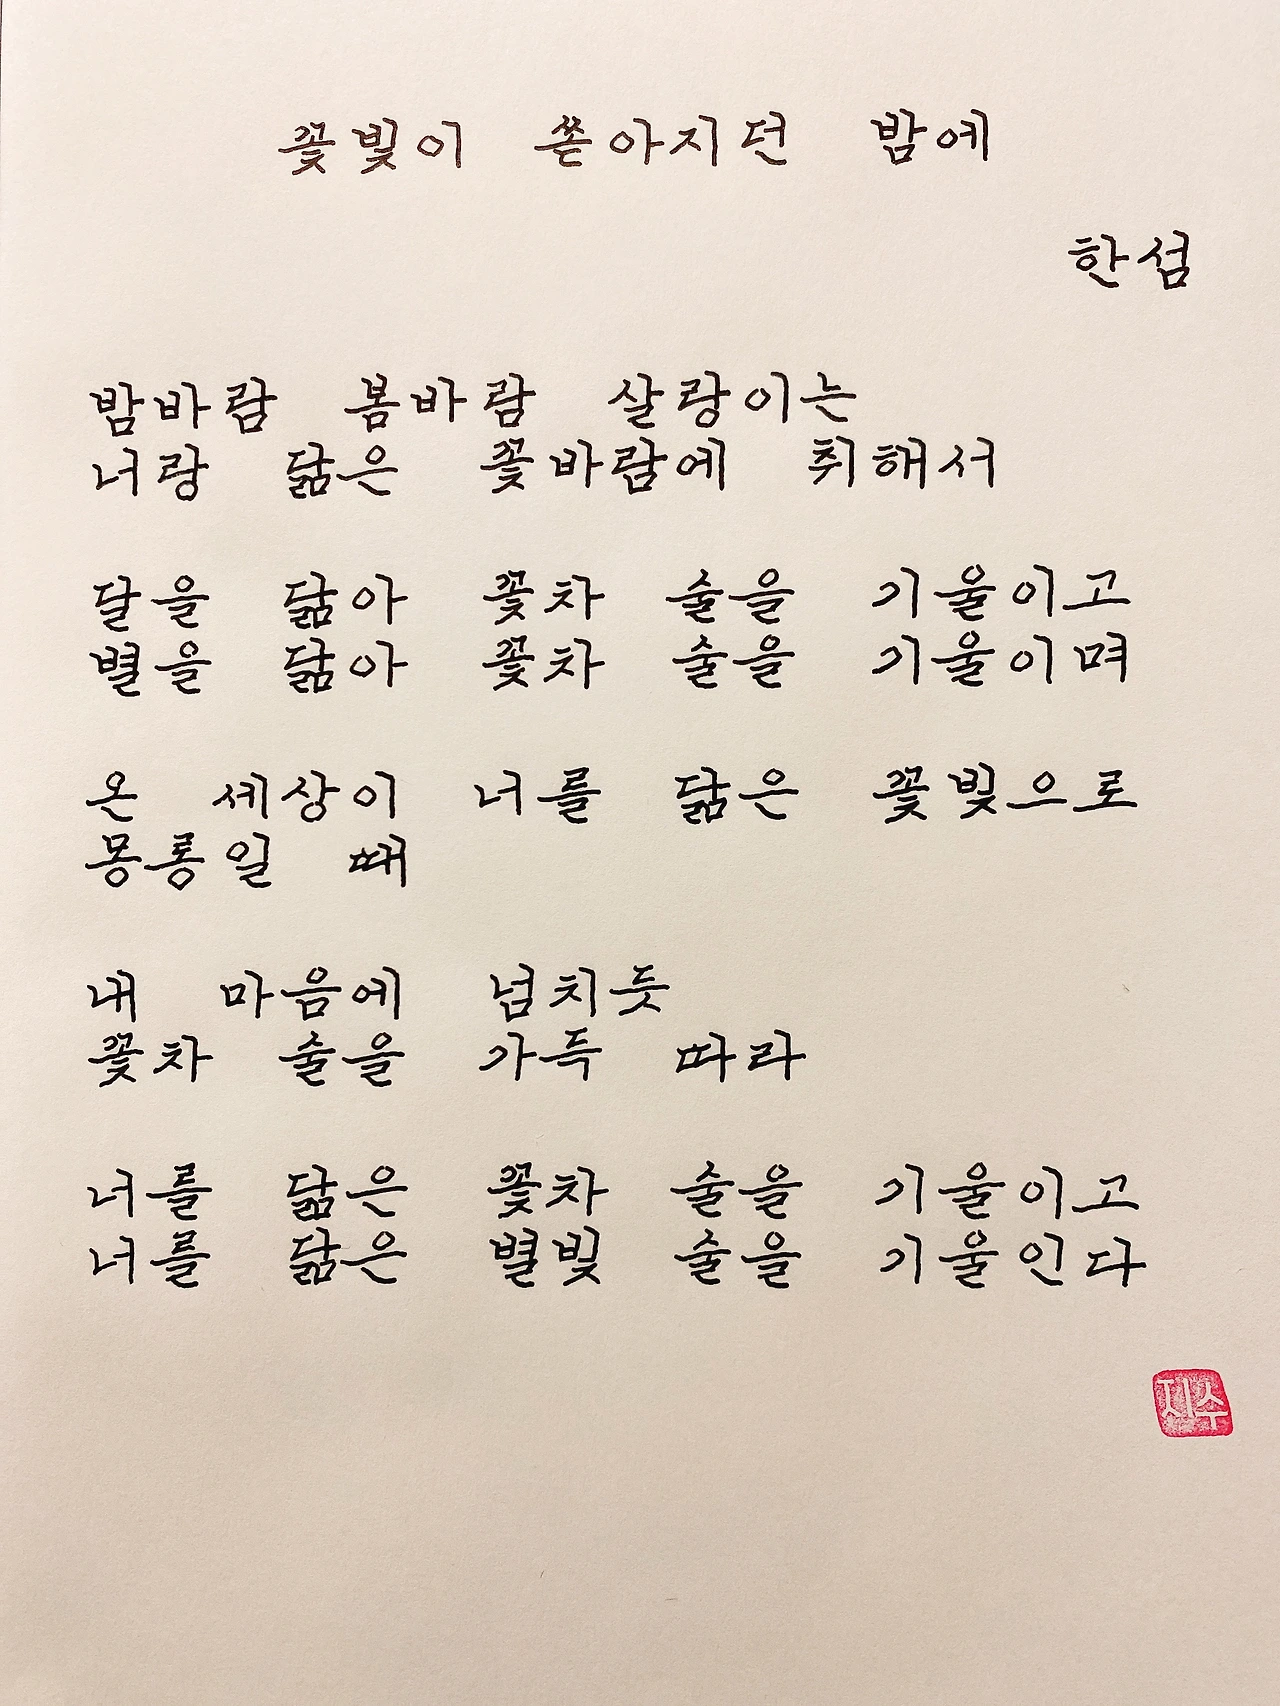 꽃빛이 쏟아지던 밤에
한섬
밤바람 봄바람 살랑이는
너랑 닮은 꽃바람에 취해서
달을 닮아 꽃차 술을 기울이고
별을 닮아 꽃차 술을 기울이며
온 세상이 너를 닮은 꽃빛으로
몽롱일 때
내 마음에 넘치듯
꽃차 술을 가득 따라
너를 닮은 꽃차 술을 기울이고
너를 닮은 별빛 술을 기울인다
지수